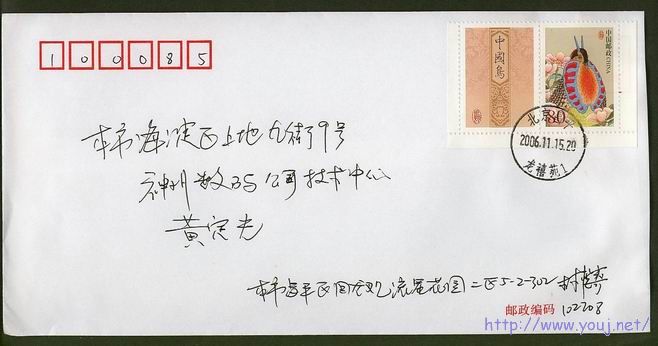 100085
中國鳥
中国邮政 CHINA
80
北京
2006.11.15.20
龙禧苑1
本市海淀区上地九街9号
神州数码公司技术中心
黄定光
本市昌平区回龙观流星花园二区5-2-302
邮政编码 102208
http://www.youj.net/